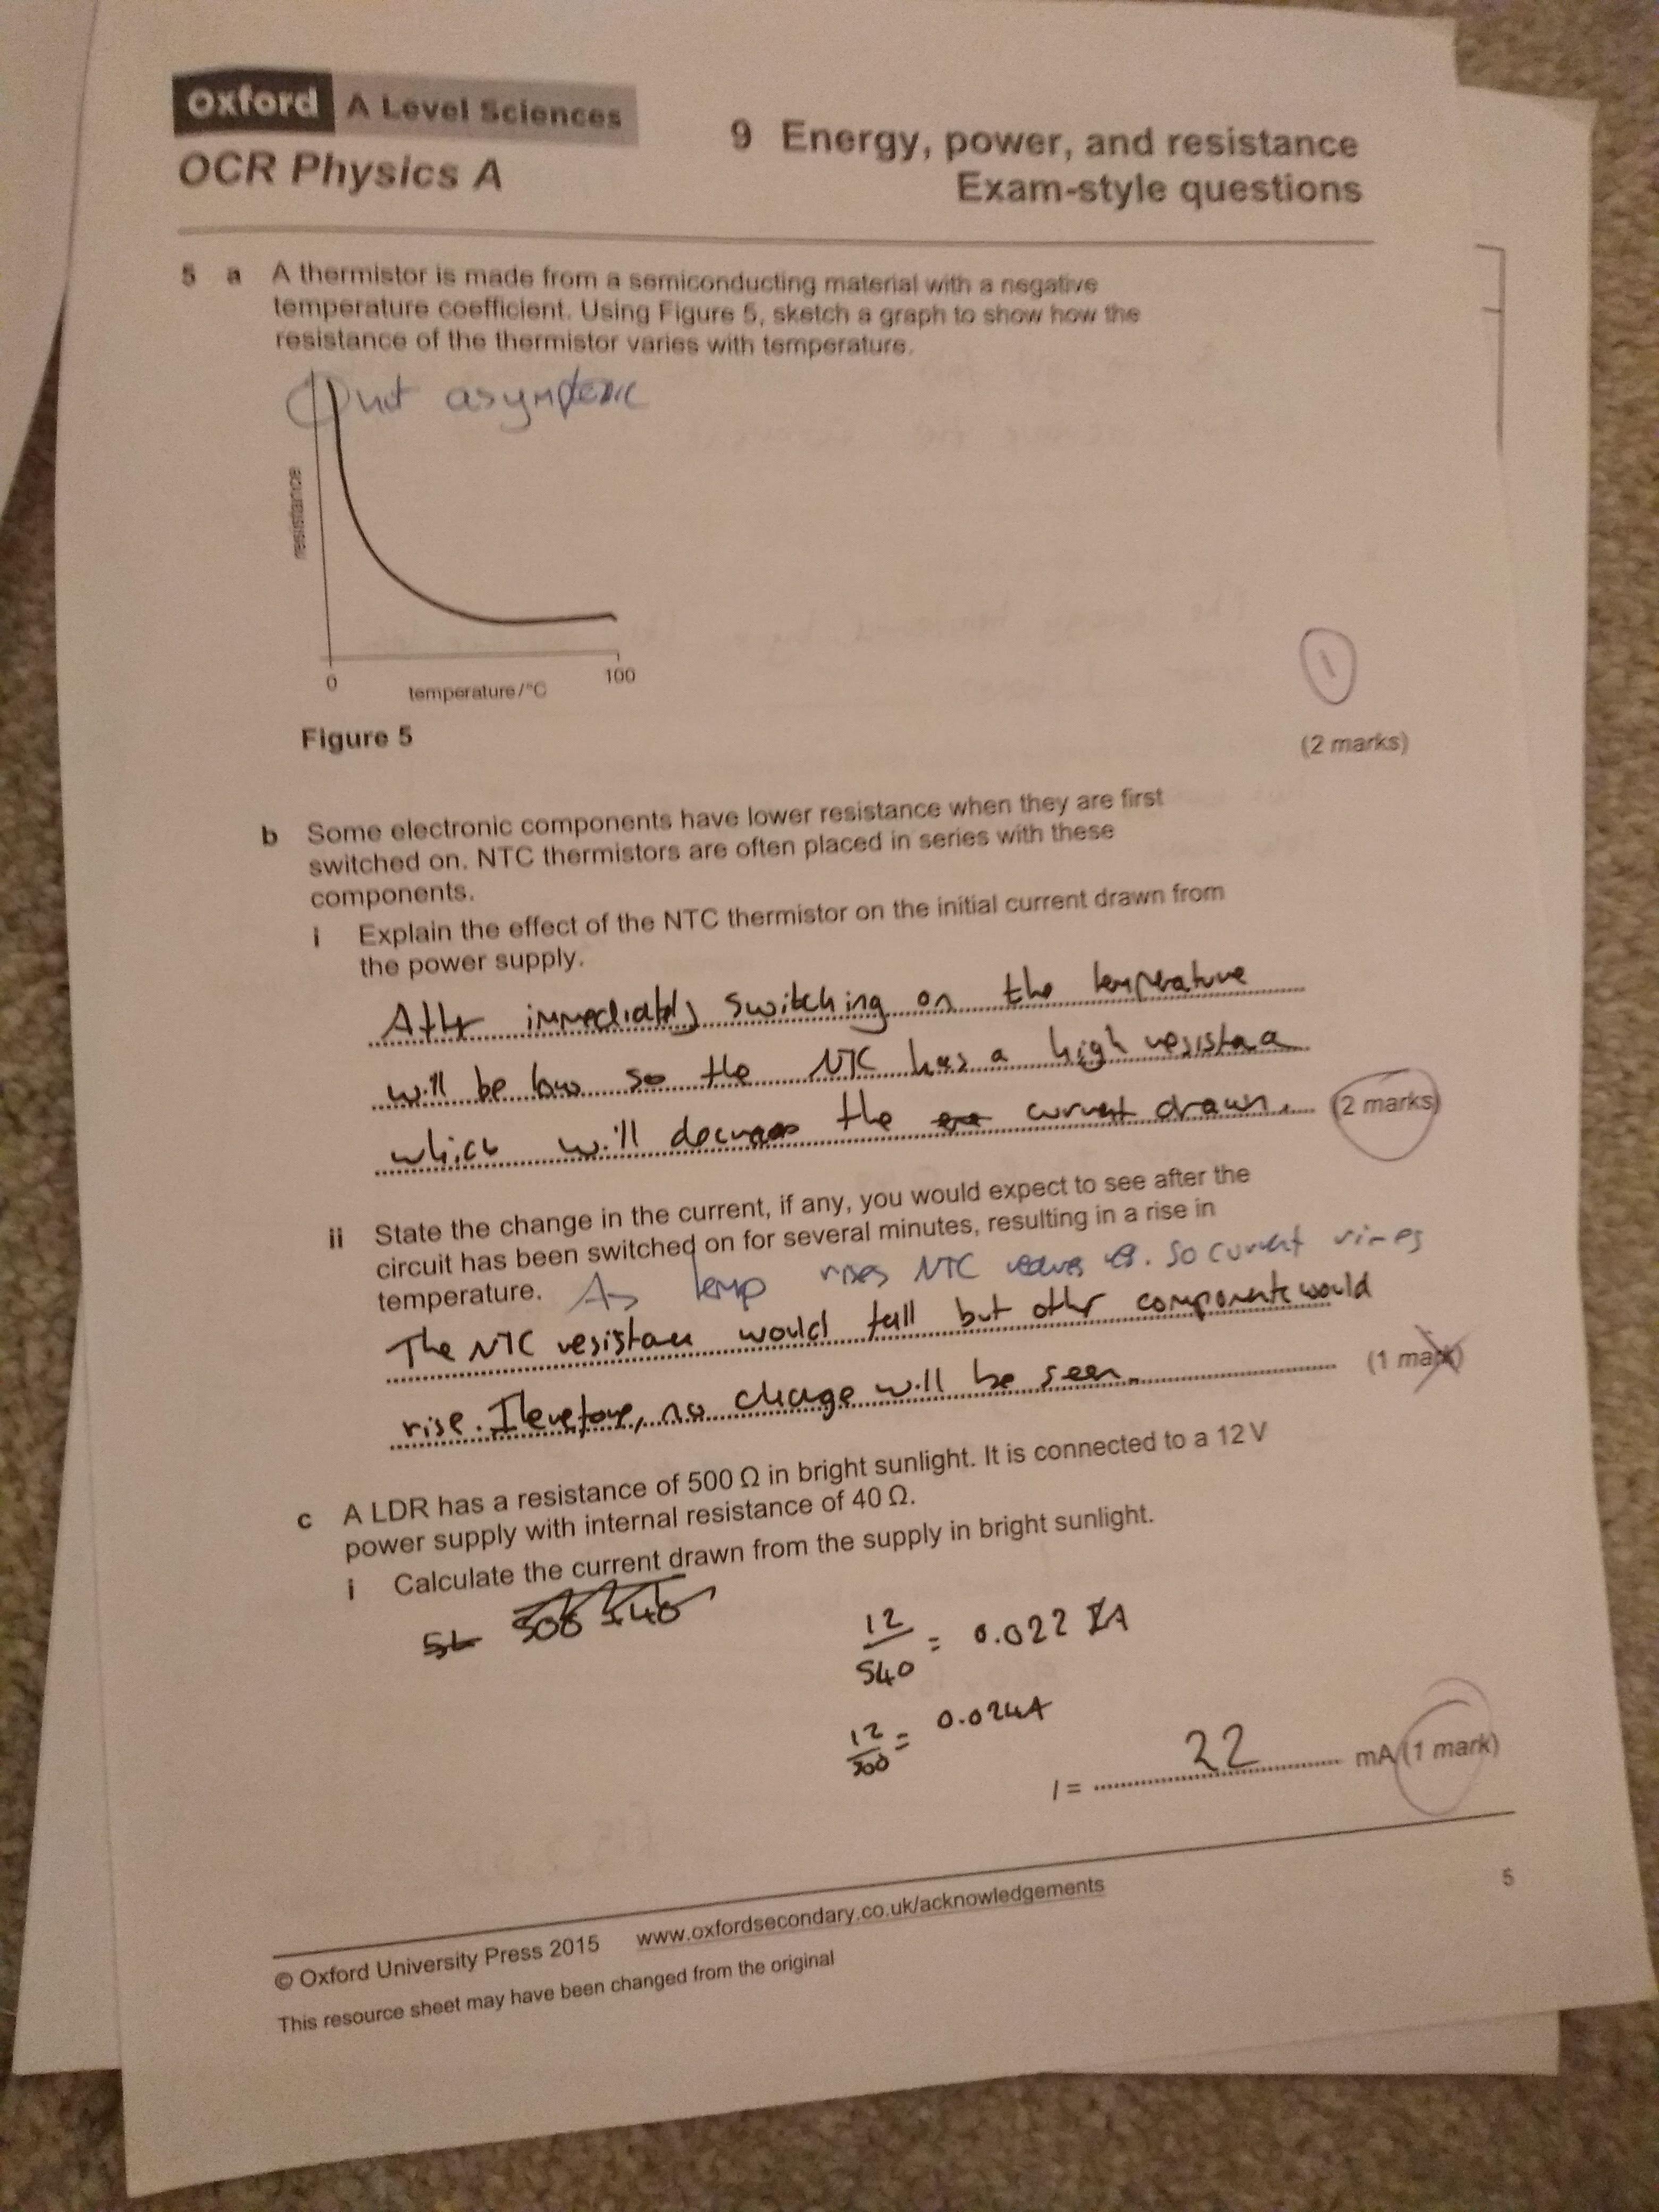 Oxford A Level Sciences
OCR Physics A
9 Energy, power, and resistance
Exam-style questions
5 a A thermistor is made from a semiconducting material with a negative
temperature coefficient. Using Figure 5, sketch a graph to show how the
resistance of the thermistor varies with temperature.
not
resistance
0 100
temperature/°C
1
Figure 5
(2 marks)
b Some electronic components have lower resistance when they are first
switched on. NTC thermistors are often placed in series with these
components.
i Explain the effect of the NTC thermistor on the initial current drawn from
the power supply.
After immediately switching on the temperature
will be low so the NTC has a high
which will the current drawn. (2 marks)
ii State the change in the current, if any, you would expect to see after the
circuit has been switched on for several minutes, resulting in a rise in
temperature. As temp rises NTC so current rises
The NTC would fall but other components would
(1 mark)
rise. Therefore, no change will be seen.
c A LDR has a resistance of 500 Ω in bright sunlight. It is connected to a 12 V
power supply with internal resistance of 40 Ω.
i Calculate the current drawn from the supply in bright sunlight.
12/540 = 0.022 A
12/500 = 0.024A
I = 22 mA (1 mark)
5
© Oxford University Press 2015 www.oxfordsecondary.co.uk/acknowledgements
This resource sheet may have been changed from the original